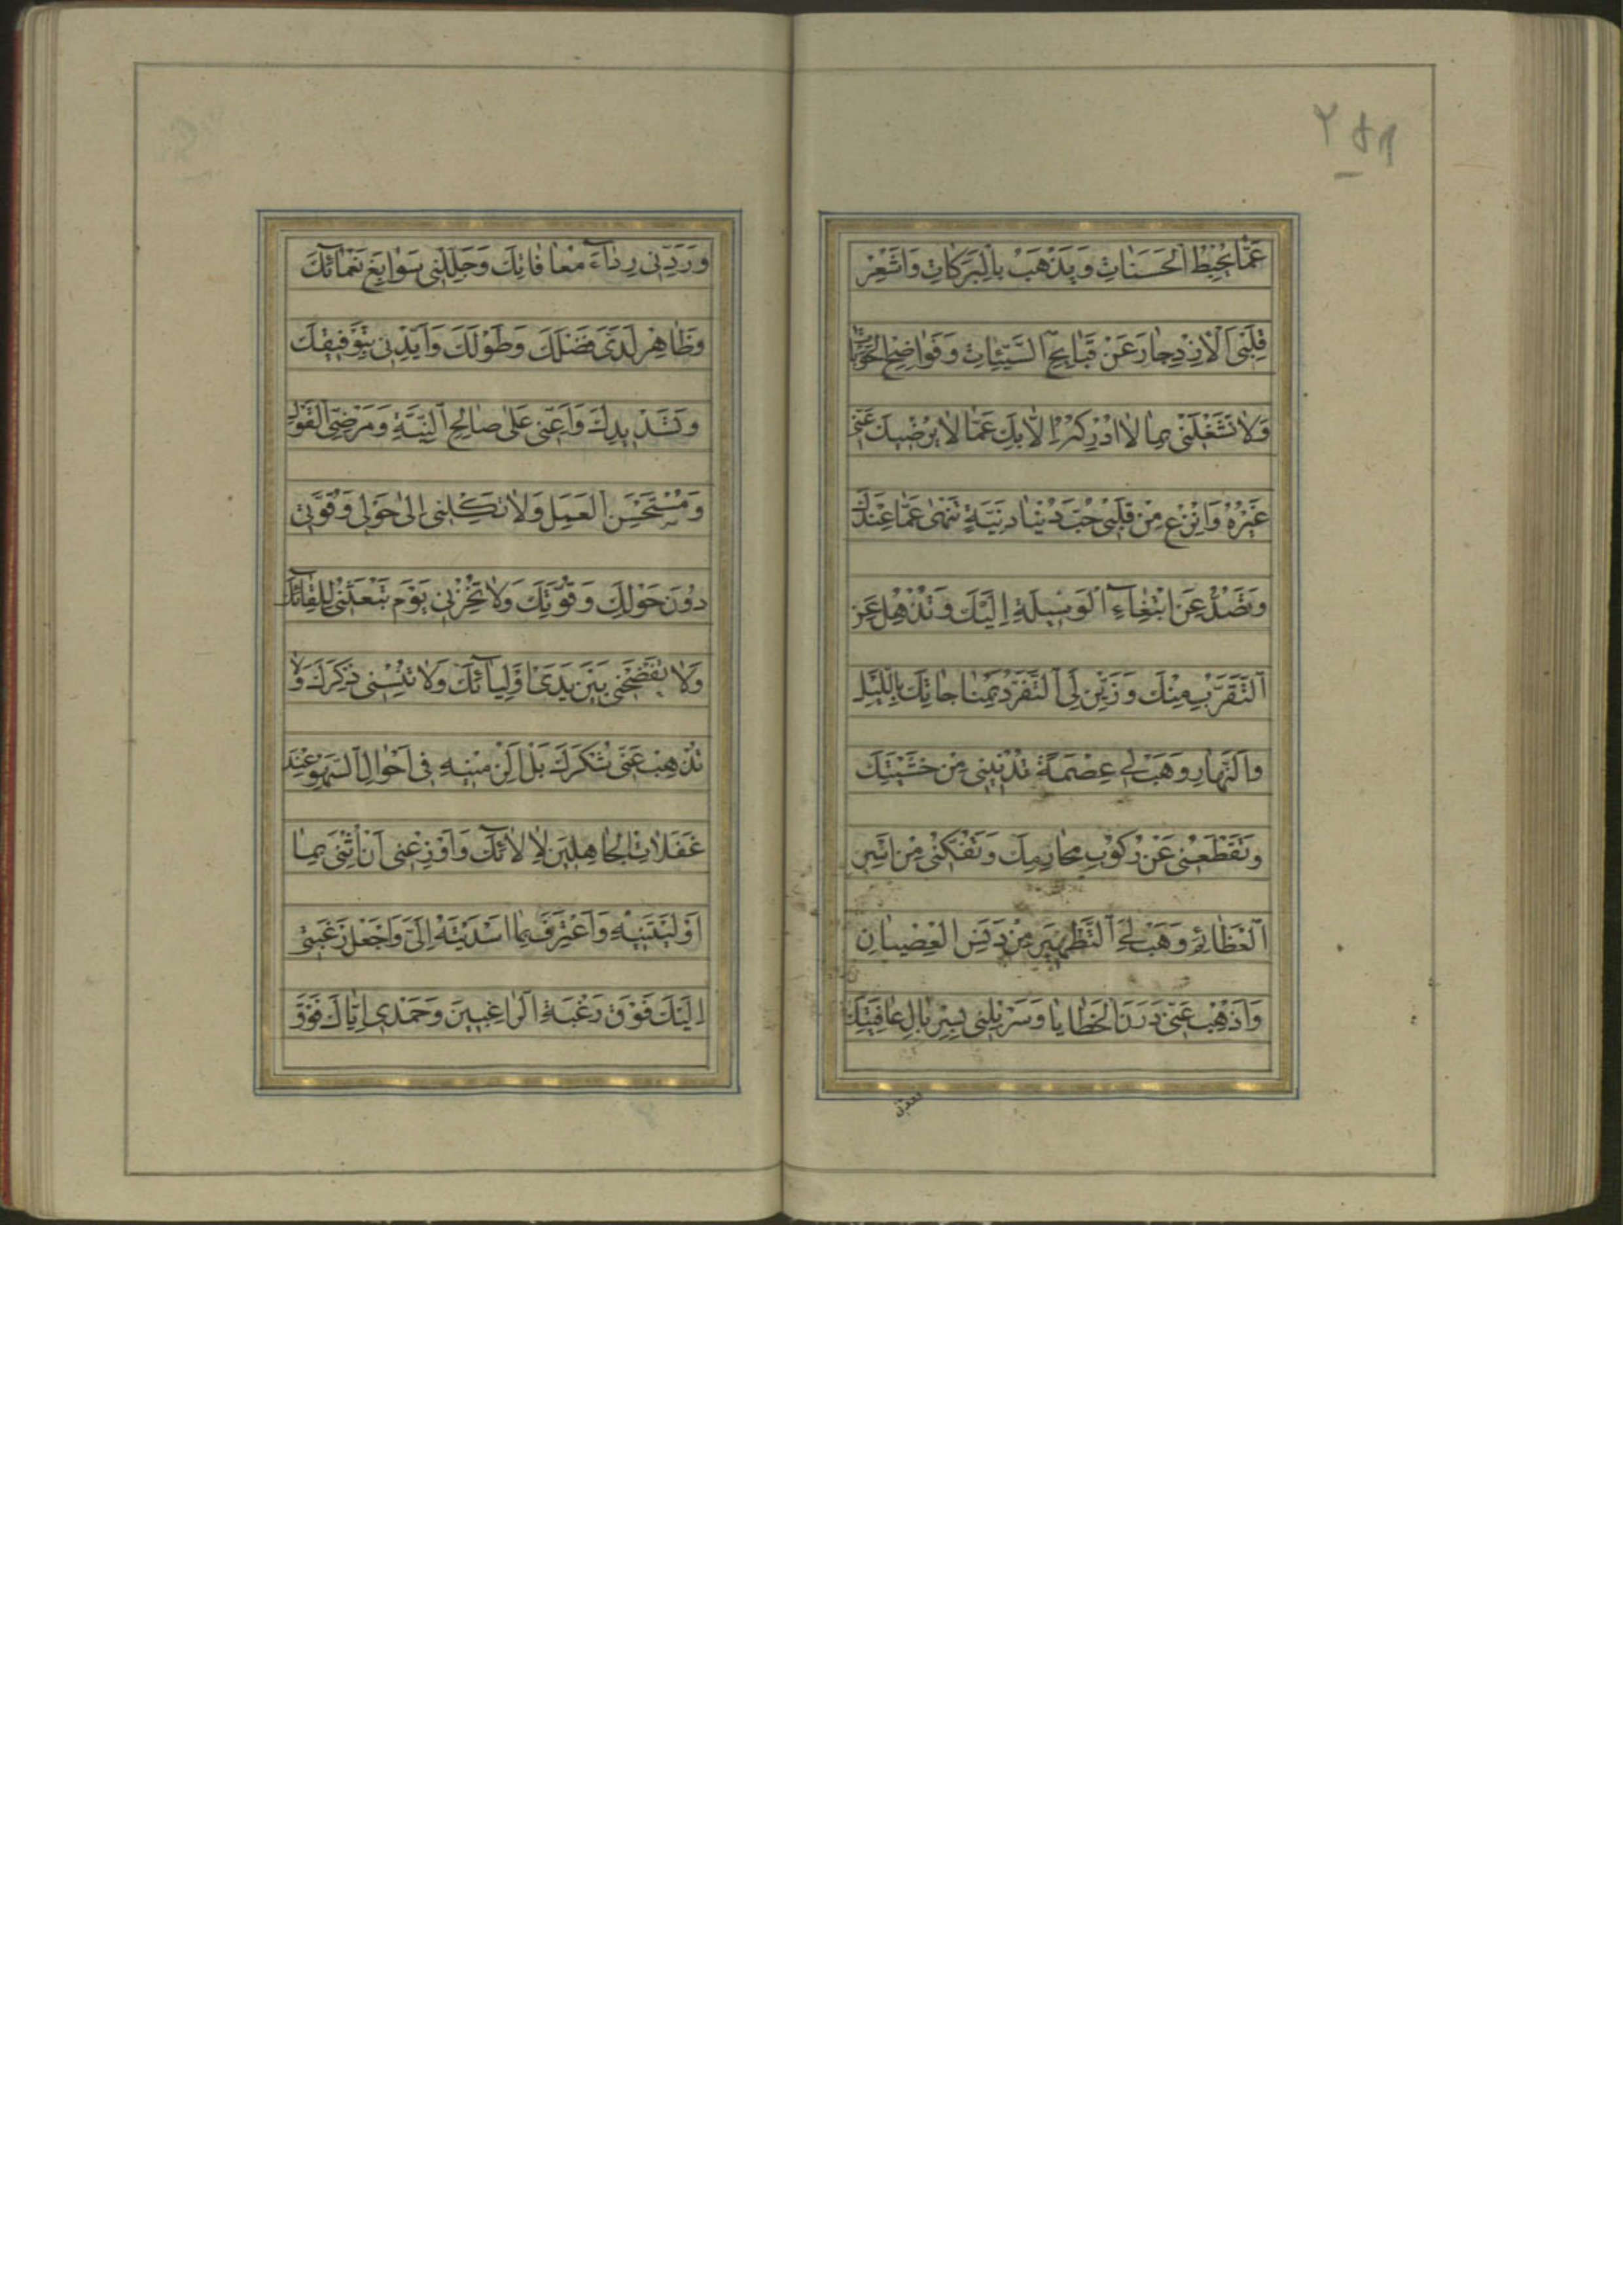 ٢٥٢
عَمَّا يُحْبِطُ الْحَسَنَاتِ وَيَذْهَبُ بِالْبَرَكَاتِ وَأَشْعِرْ
قَلْبِيَ الْاِزْدِجَارَ عَنْ قَبَايِحِ السَّيِّئَاتِ وَفَوَاضِحِ الْحَوْبَاتِ
وَلَا تَشْغَلْنِي بِمَا لَا أُدْرِكُهُ إِلَّا بِكَ عَمَّا لَا يُرْضِيكَ عَنِّي
غَيْرُهُ وَانْزِعْ مِنْ قَلْبِي حُبَّ دُنْيَا دَنِيَّةٍ تَنْهَى عَمَّا عِنْدَكَ
وَتَصُدُّ عَنِ ابْتِغَاءِ الْوَسِيلَةِ إِلَيْكَ وَتُذْهِلُ عَنِ
التَّقَرُّبِ مِنْكَ وَزَيِّنْ لِيَ التَّفَرُّدَ بِمُنَاجَاتِكَ بِاللَّيْلِ
وَالنَّهَارِ وَهَبْ لِي عِصْمَةً تُدْنِينِي مِنْ خَشْيَتِكَ
وَتَقْطَعُنِي عَنْ رُكُوبِ مَحَارِمِكَ وَتَفُكُّنِي مِنْ أَسْرِ
الْعَظَائِمِ وَهَبْ لِيَ التَّطْهِيرَ مِنْ دَنَسِ الْعِصْيَانِ
وَأَذْهِبْ عَنِّي دَرَنَ الْخَطَايَا وَسَرْبِلْنِي بِسِرْبَالِ عَافِيَتِكَ
وَرَدِّنِي رِدَاءَ مُعَافَاتِكَ وَجَلِّلْنِي سَوَابِغَ نَعْمَائِكَ
وَظَاهِرْ لَدَيَّ فَضْلَكَ وَطَوْلَكَ وَأَيِّدْنِي بِتَوْفِيقِكَ
وَتَسْدِيدِكَ وَأَعِنِّي عَلَى صَالِحِ النِّيَّةِ وَمَرْضِيِّ الْقَوْلِ
وَمُسْتَحْسَنِ الْعَمَلِ وَلَا تَكِلْنِي إِلَى حَوْلِي وَقُوَّتِي
دُونَ حَوْلِكَ وَقُوَّتِكَ وَلَا تُخْزِنِي يَوْمَ تَبْعَثُنِي لِلِقَائِكَ
وَلَا تَفْضَحْنِي بَيْنَ يَدَيْ أَوْلِيَائِكَ وَلَا تُنْسِنِي ذِكْرَكَ وَلَا
تُذْهِبْ عَنِّي شُكْرَكَ بَلْ أَلْزِمْنِيهِ فِي أَحْوَالِ السَّهْوِ عِنْدَ
غَفَلَاتِ الْجَاهِلِينَ لِآلَائِكَ وَأَوْزِعْنِي أَنْ أُثْنِيَ بِمَا
أَوْلَيْتَنِيهِ وَأَعْتَرِفَ بِمَا أَسْدَيْتَهُ إِلَيَّ وَاجْعَلْ رَغْبَتِي
إِلَيْكَ فَوْقَ رَغْبَةِ الرَّاغِبِينَ وَحَمْدِي إِيَّاكَ فَوْقَ